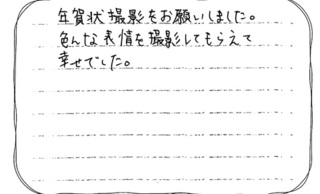 年賀状撮影をお願いしました。
色んな表情を撮影してもらえて
幸せでした。